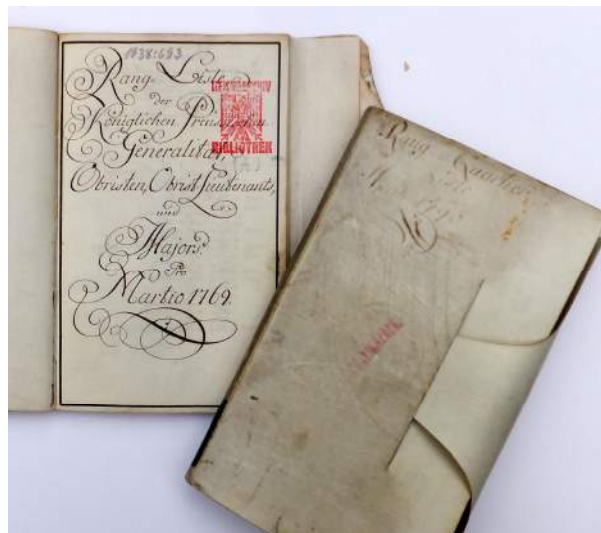 1938:693
Rang-Liste
der
Königlichen Preussischen
Generalität,
Obristen, Obrist Lieutenants,
und
Majors.
Pro
Martio 1769.
HEERESARCHIV
BIBLIOTHEK
Rang
Liste